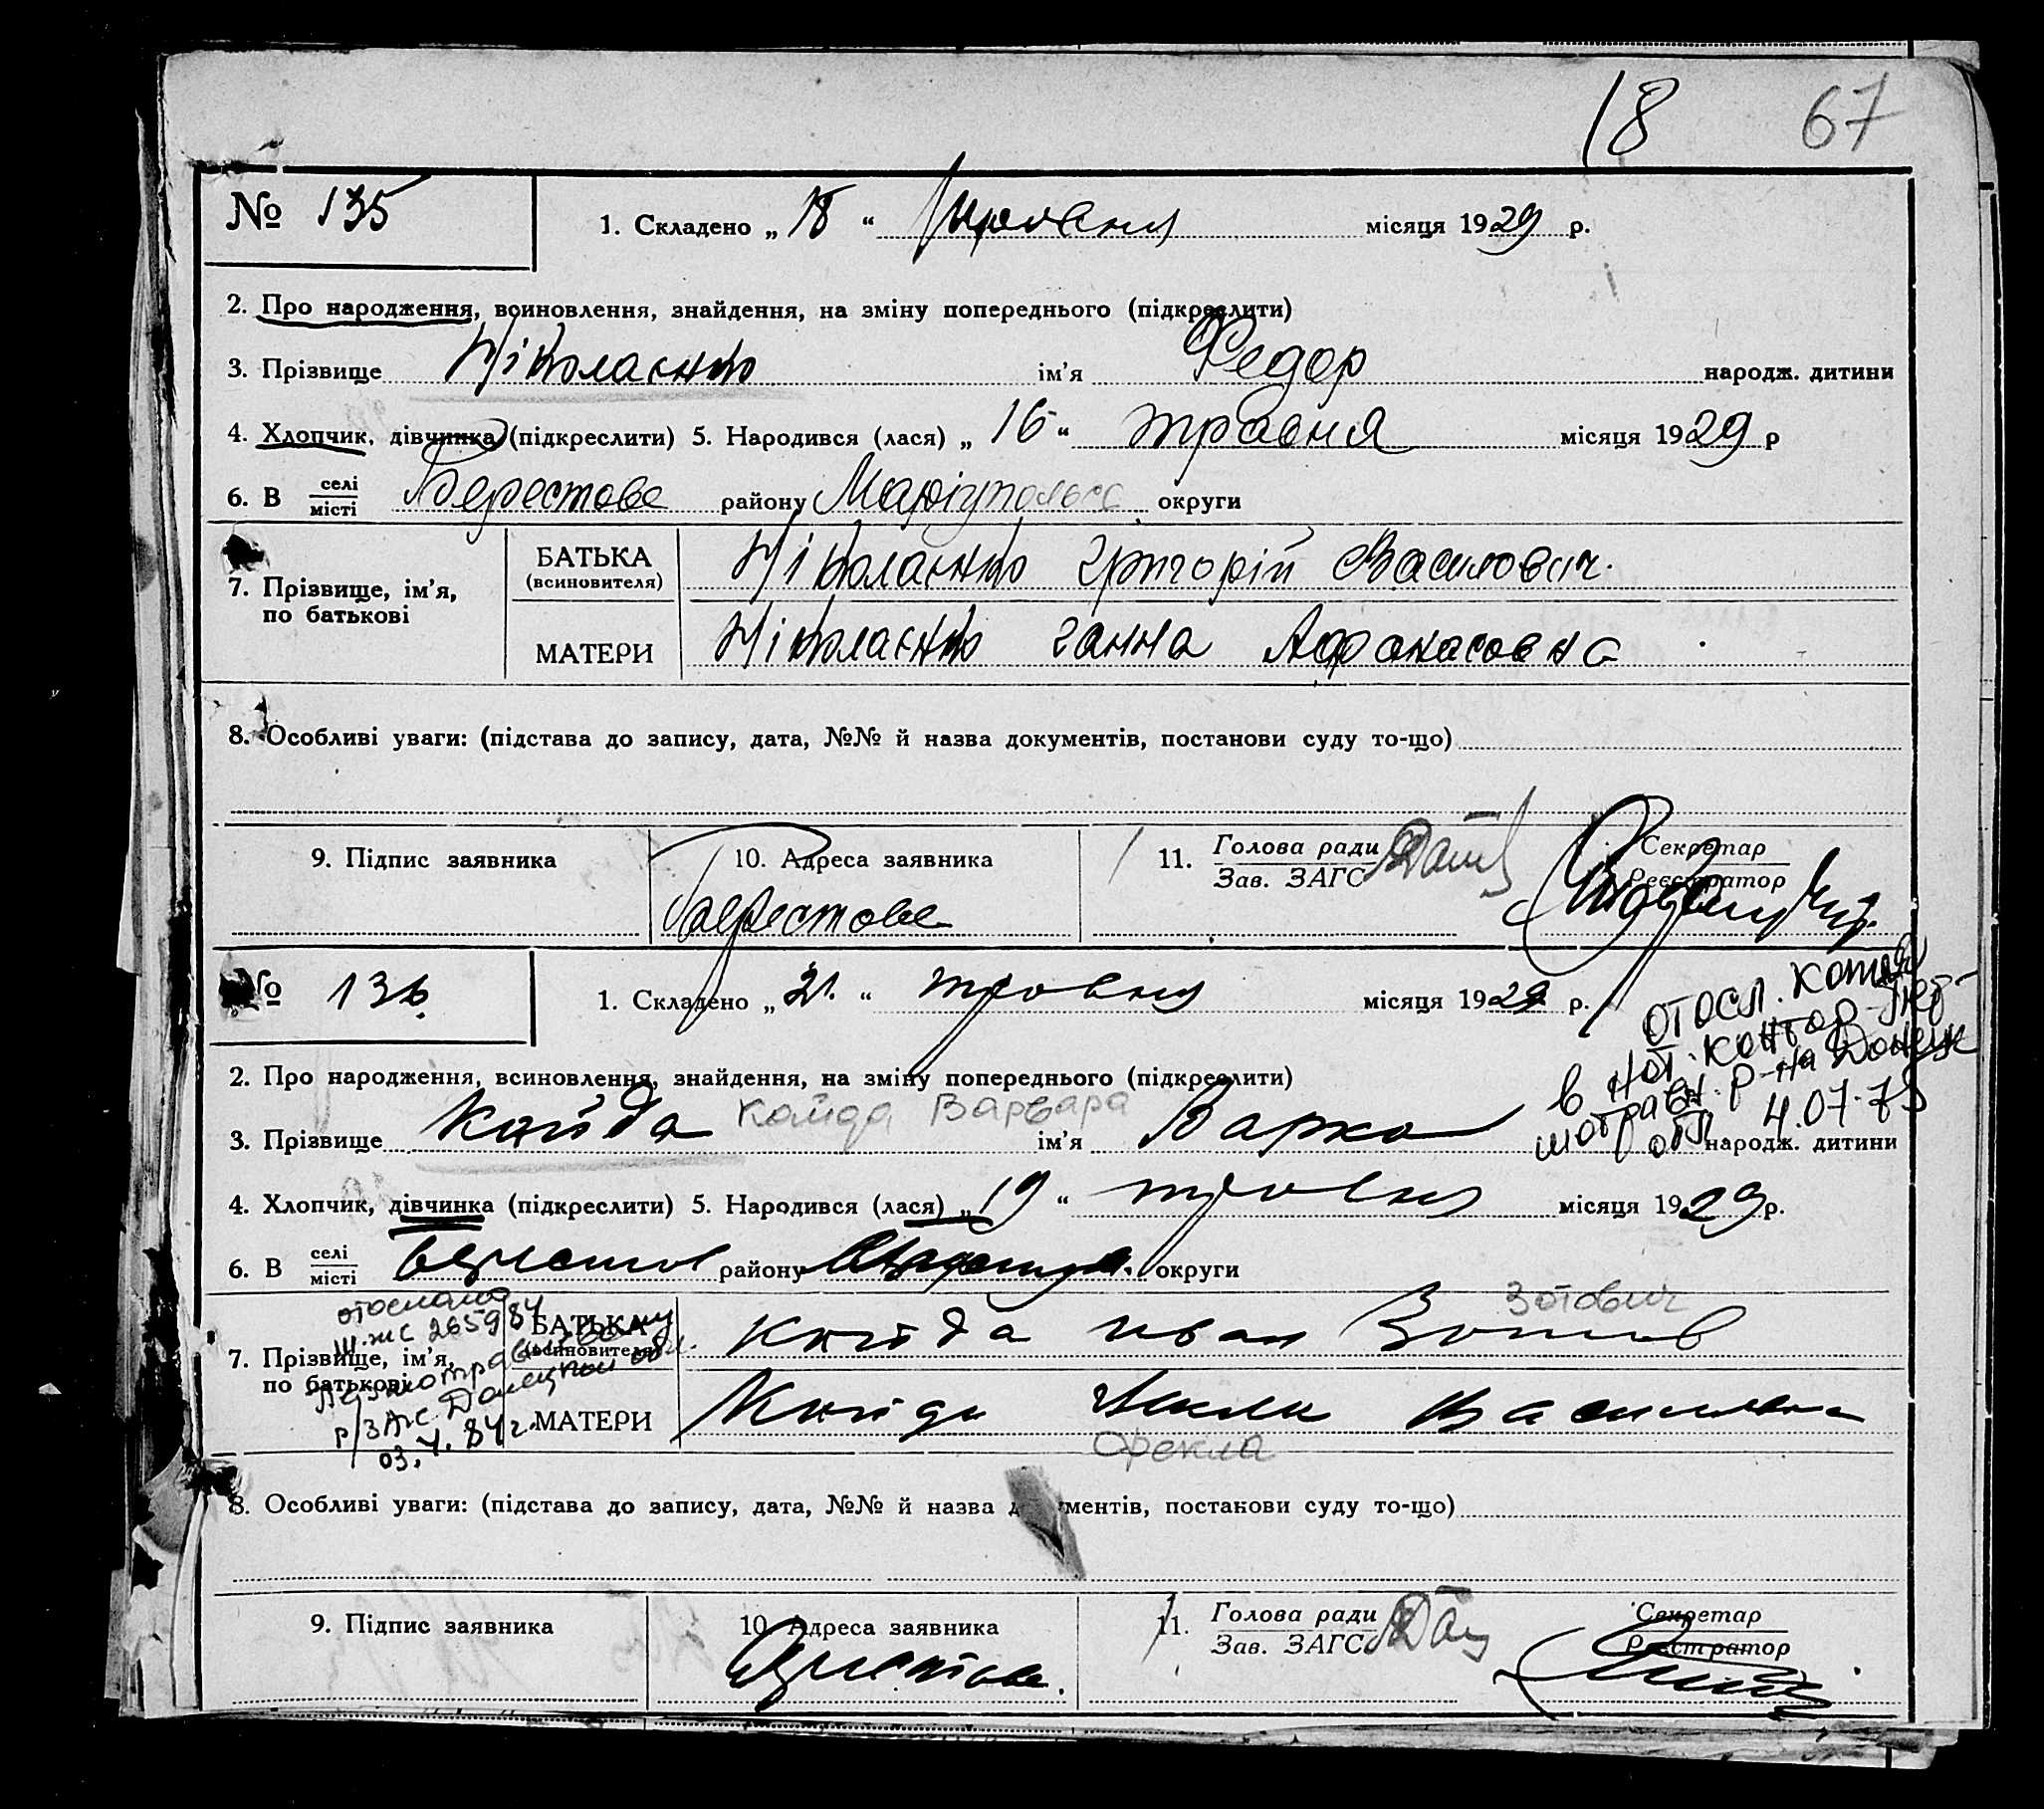 18 67
№ 135 1. Складено „ 18 “ травня місяця 1929 р.
2. Про народження, всиновлення, знайдення, на зміну попереднього (підкреслити)
3. Прізвище Ніколаєнко ім’я Федор народж. дитини
4. Хлопчик, дівчинка (підкреслити) 5. Народився (лася) „ 16 “ травня місяця 1929 р
6. В селі місті Берестове району Маріупольсь округи
7. Прізвище, ім’я, по батькові
БАТЬКА (всиновителя) Ніколаєнко Григорій Василович.
МАТЕРИ Ніколаєнко Ганна Афанасовна
8. Особливі уваги: (підстава до запису, дата, №№ й назва документів, постанови суду то-що)
9. Підпис заявника 10. Адреса заявника 11. Голова ради Секретар
Зав. ЗАГС Реєстратор
Берестове
№ 136. 1. Складено „ 21. “ травня місяця 1929 р.
отосл. копия
в нот. контор
р-на Донецк
4.07.75
2. Про народження, всиновлення, знайдення, на зміну попереднього (підкреслити)
Кайда Варвара
3. Прізвище Кайда ім’я Варка народж. дитини
4. Хлопчик, дівчинка (підкреслити) 5. Народився (лася) „ 19 “ травня місяця 1929 р.
6. В селі місті Берестов району округи
отослано
265984
Зотович
7. Прізвище, ім’я, по батькові
БАТЬКА (всиновителя) Кайда Иван Зотов
р/ЗАГС Донецкой обл.
03. 4. 84 г.
МАТЕРИ Кайда Текля Василівна
Фекла
8. Особливі уваги: (підстава до запису, дата, №№ й назва документів, постанови суду то-що)
9. Підпис заявника 10. Адреса заявника 11. Голова ради Секретар
Зав. ЗАГС Реєстратор
Берестове.